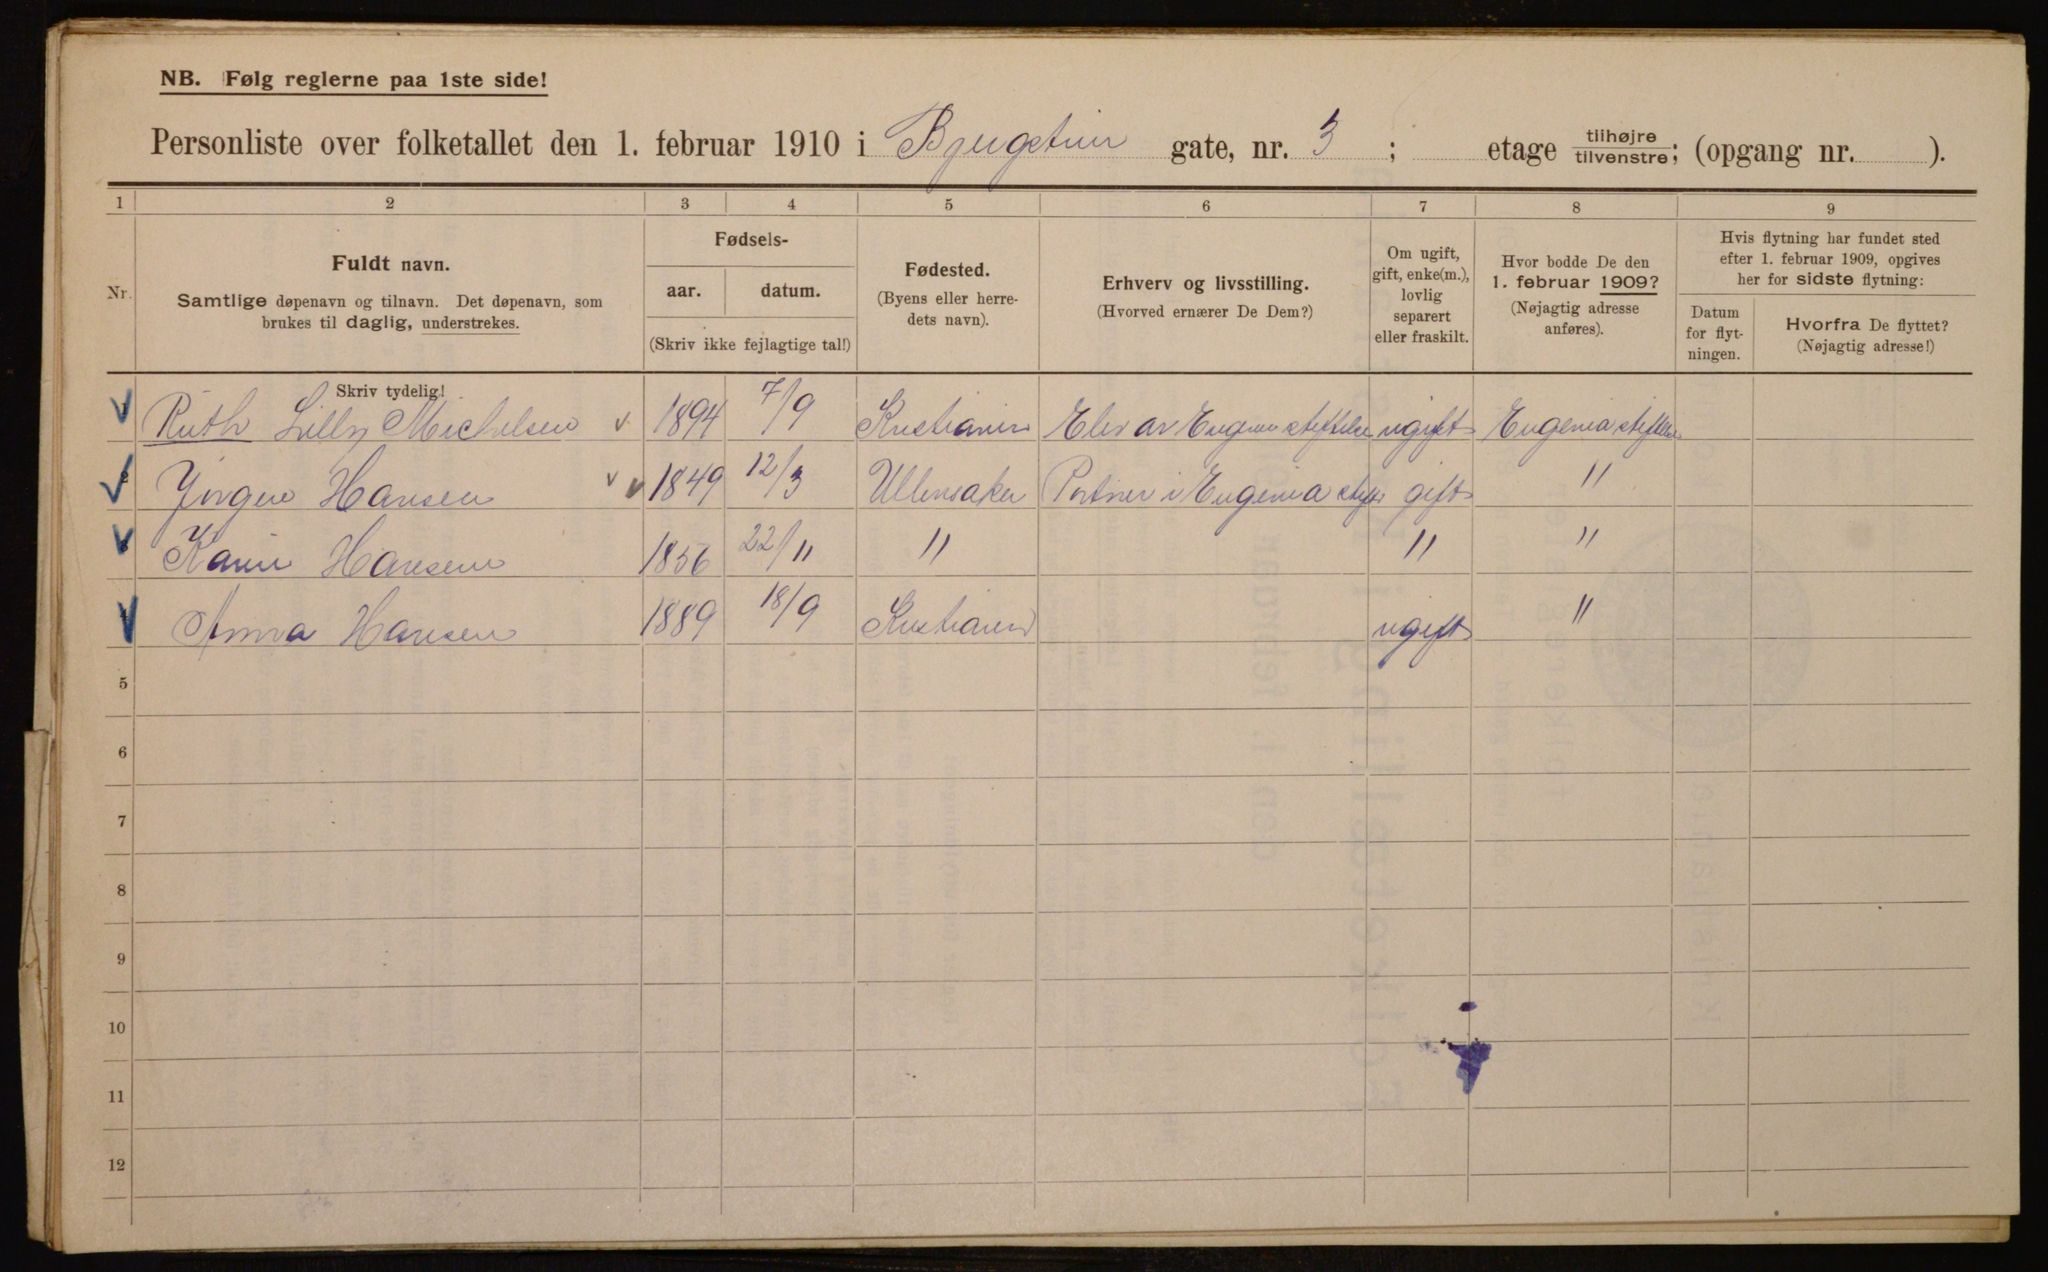 NB. Følg reglerne paa 1ste side!
Personliste over folketallet den 1. februar 1910 i Bjergstien gate, nr. 3 ; etage tilhøjre tilvenstre; (opgang nr. ).
1 2 3 4 5 6 7 8 9
Nr.
Fuldt navn.
Samtlige døpenavn og tilnavn. Det døpenavn, som
brukes til daglig, understrekes.
Fødsels-
aar. datum.
(Skriv ikke fejlagtige tal!)
Fødested.
(Byens eller herre-
dets navn).
Erhverv og livsstilling.
(Hvorved ernærer De Dem?)
Om ugift,
gift, enke(m.),
lovlig
separert
eller fraskilt.
Hvor bodde De den
1. februar 1909?
(Nøjagtig adresse
anføres).
Hvis flytning har fundet sted
efter 1. februar 1909, opgives
her for sidste flytning:
Datum
for flyt-
ningen.
Hvorfra De flyttet?
(Nøjagtig adresse!)
Skriv tydelig!
Ruth Lilly Michelsen 1894 7/9 Kristiania Elev av Eugenia stiftelse ugift Eugenia stiftelse
Jörgen Hansen 1849 12/3 Ullensaker Portner i Eugenia stift gift "
Karen Hansen 1856 22/11 " " "
Anna Hansen 1889 18/9 Kristiania ugift "
5
6
7
8
9
10
11
12